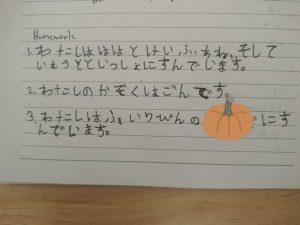 Homework
1. わたしははは とはい、ふ あね、そして
いもうとといっしょにすんでいます。
2. わたしのかぞくはごんです。
3. わたしはふぃりぴんの にす
んでいます。